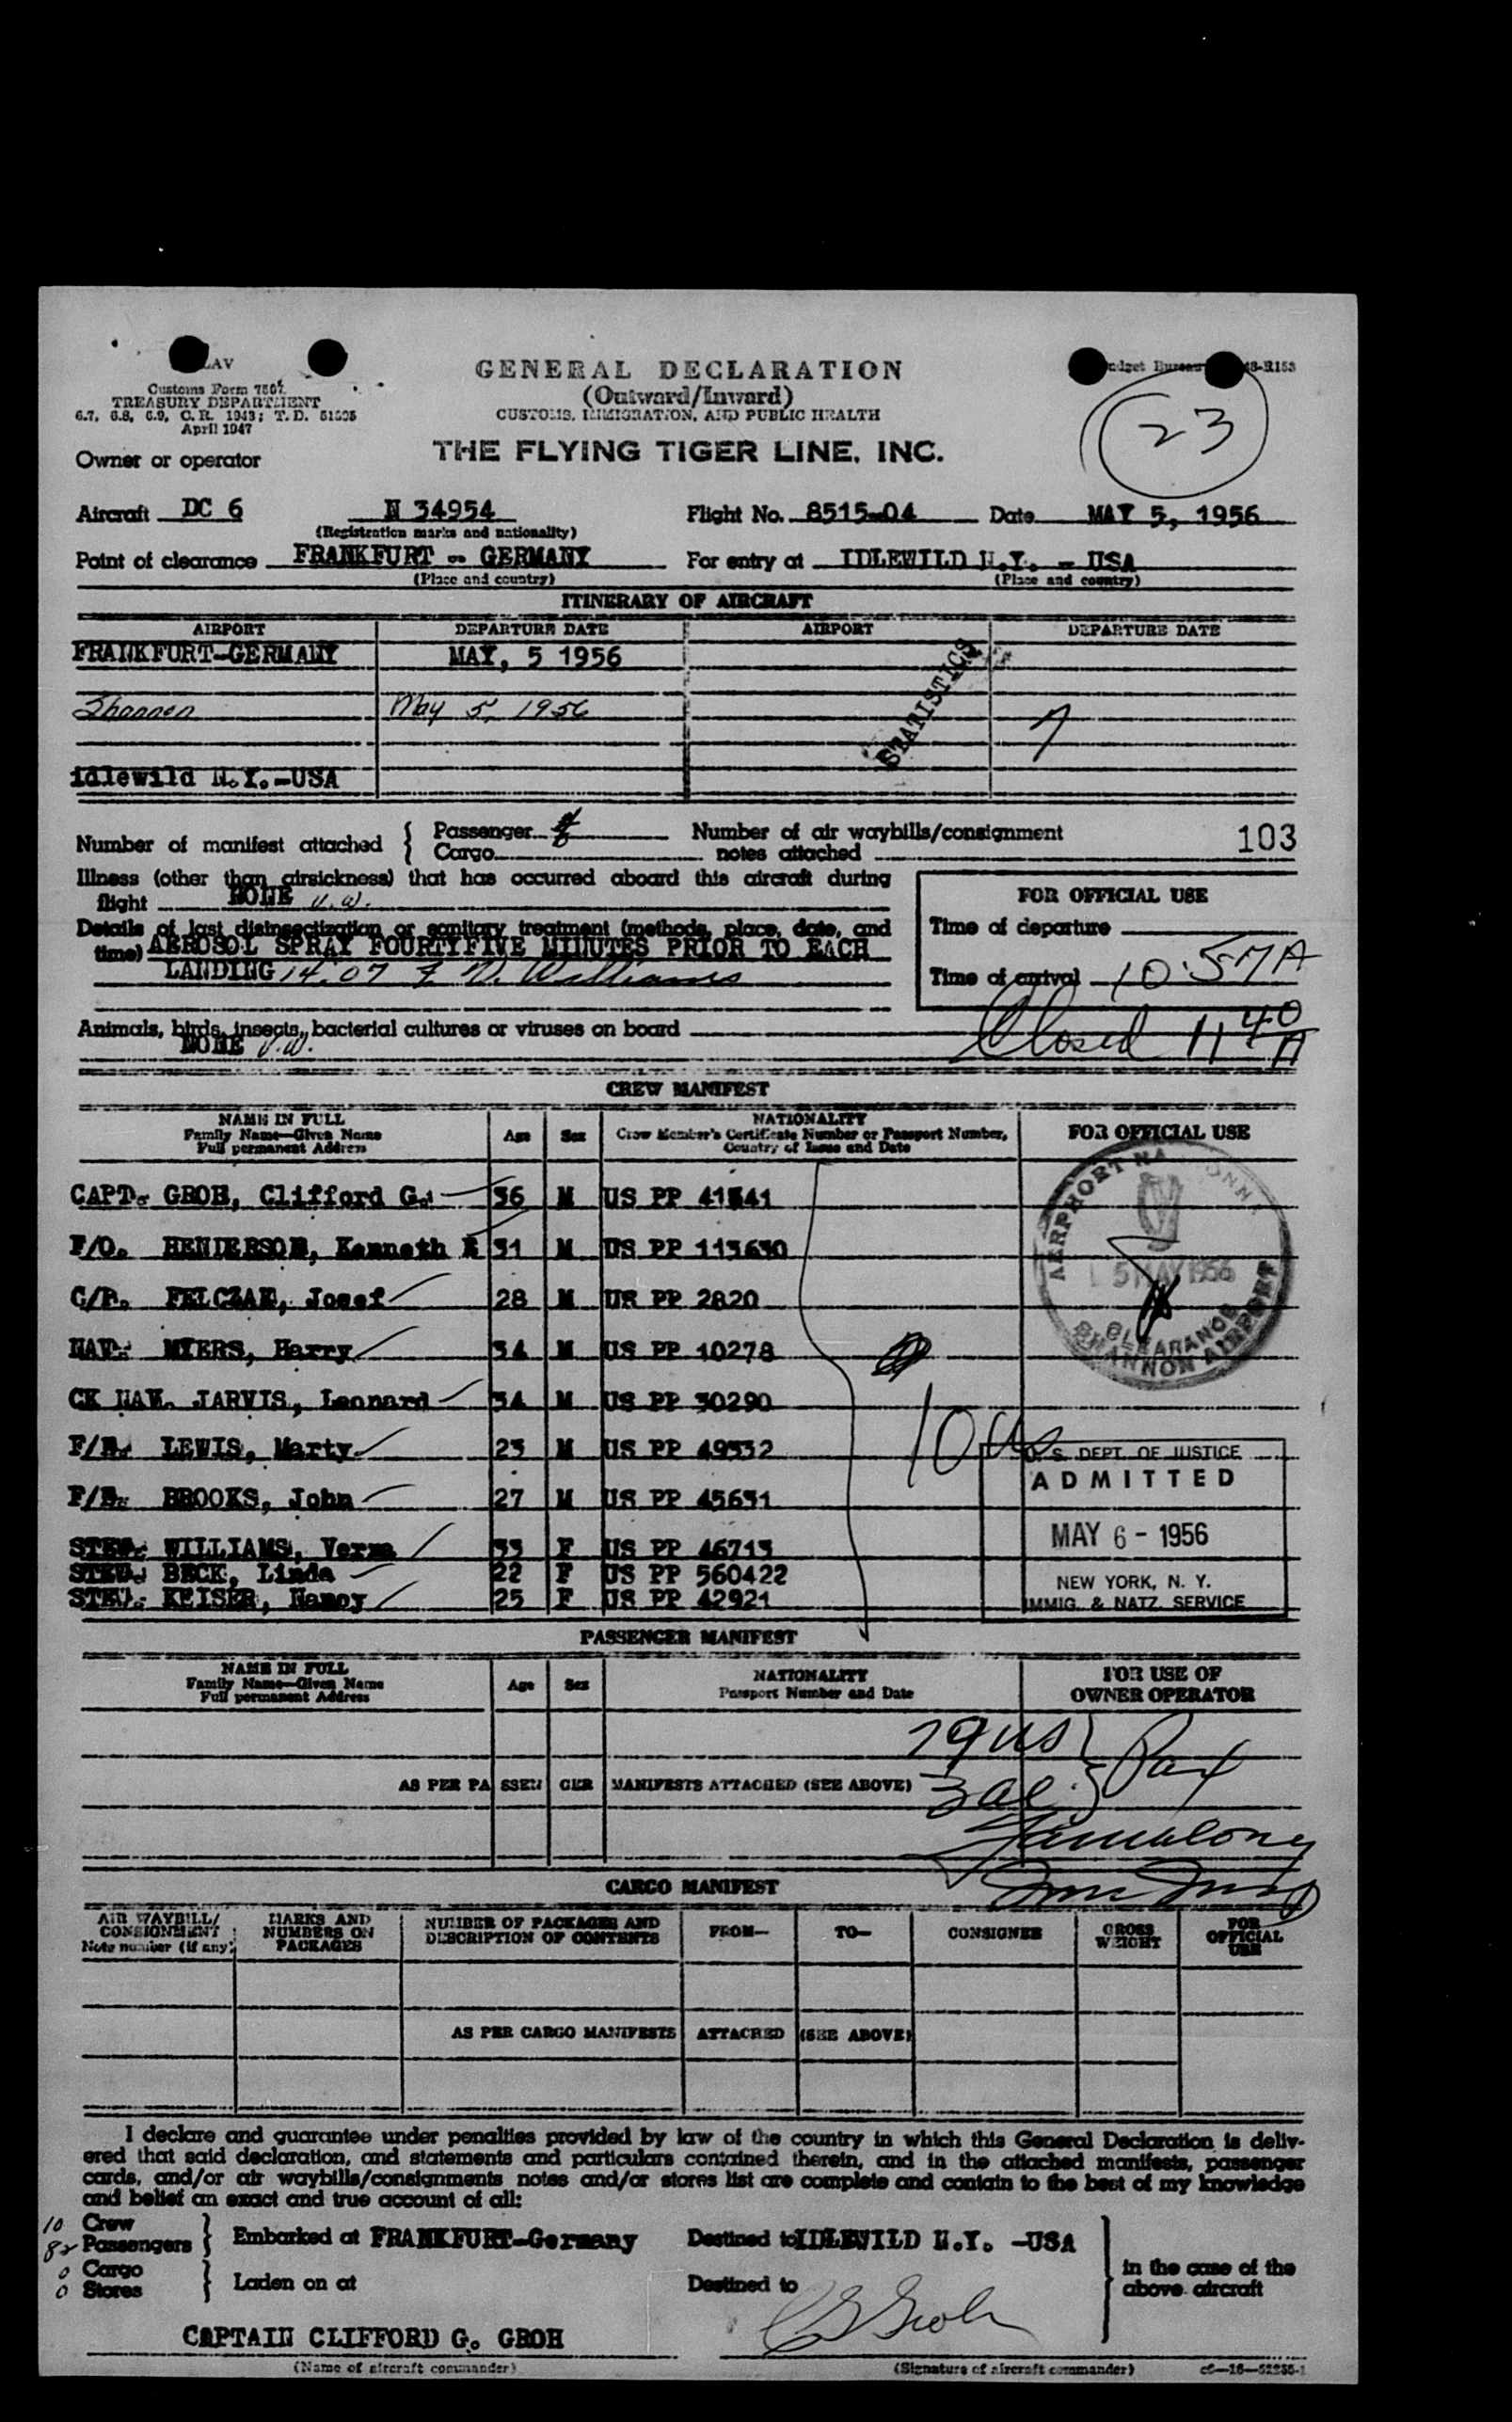 LAV
Customs Form 7507
TREASURY DEPARTMENT
6.7, 6.8, 6.9, C. R. 1943; T. D. 51505
April 1947
GENERAL DECLARATION
(Outward/Inward)
CUSTOMS, IMMIGRATION, AND PUBLIC HEALTH
THE FLYING TIGER LINE, INC.
Budget Bureau 48-R153
23
Owner or operator
Aircraft DC 6 N 34954 Flight No. 8515-04 Date MAY 5, 1956
(Registration marks and nationality)
Point of clearance FRANKFURT - GERMANY For entry at IDLEWILD N.Y. - USA
(Place and country) (Place and country)
ITINERARY OF AIRCRAFT
AIRPORT DEPARTURE DATE AIRPORT DEPARTURE DATE
FRANKFURT-GERMANY MAY, 5 1956
STATISTICS
Shannon May 5, 1956
idlewild N.Y.-USA
Number of manifest attached { Passenger Number of air waybills/consignment 103
Cargo notes attached
Illness (other than airsickness) that has occurred aboard this aircraft during
flight NONE v.w.
Details of last disinsectization or sanitary treatment (methods, place, date, and
time) AEROSOL SPRAY FOURTYFIVE MINUTES PRIOR TO EACH
LANDING 14.07 Williams
FOR OFFICIAL USE
Time of departure
Time of arrival 10:57A
Closed 11 40 A
Animals, birds, insects, bacterial cultures or viruses on board
NONE v.w.
CREW MANIFEST
NAME IN FULL
Family Name—Given Name
Full permanent Address
Age Sex
NATIONALITY
Crew Member's Certificate Number or Passport Number,
Country of Issue and Date
FOR OFFICIAL USE
CAPT. GROH, Clifford G. 36 M US PP 41341
F/O. HENDERSON, Kenneth R 31 M US PP 113630
C/P. FELCZAK, Josef 28 M US PP 2820
NAV. MYERS, Harry 34 M US PP 10278
CK NAV. JARVIS, Leonard 34 M US PP 30290
F/E. LEWIS, Marty 23 M US PP 49332
F/E. BROOKS, John 27 M US PP 45631
STEW. WILLIAMS, Verna 33 F US PP 46713
STEW. BECK, Linda 22 F US PP 560422
STEW. KEISER, Nancy 25 F US PP 42921
10 US
AERPHORT NA ONN
5 MAY 1956
CLEARANCE
SHANNON AIRPORT
U. S. DEPT. OF JUSTICE
ADMITTED
MAY 6 - 1956
NEW YORK, N. Y.
IMMIG. & NATZ. SERVICE
PASSENGER MANIFEST
NAME IN FULL
Family Name—Given Name
Full permanent Address
Age Sex
NATIONALITY
Passport Number and Date
FOR USE OF
OWNER OPERATOR
79 US
AS PER PASSENGER MANIFESTS ATTACHED (SEE ABOVE) 3 al. } Pax
CARGO MANIFEST
AIR WAYBILL/
CONSIGNMENT
Note number (if any)
MARKS AND
NUMBERS ON
PACKAGES
NUMBER OF PACKAGES AND
DESCRIPTION OF CONTENTS
FROM— TO— CONSIGNEE
GROSS
WEIGHT
FOR
OFFICIAL
USE
AS PER CARGO MANIFESTS ATTACHED (SEE ABOVE)
I declare and guarantee under penalties provided by law of the country in which this General Declaration is deliv-
ered that said declaration, and statements and particulars contained therein, and in the attached manifests, passenger
cards, and/or air waybills/consignments notes and/or stores list are complete and contain to the best of my knowledge
and belief an exact and true account of all:
10 Crew
82 Passengers } Embarked at FRANKFURT-Germany Destined to IDLEWILD N.Y. -USA
0 Cargo
0 Stores } Laden on at Destined to
in the case of the
above aircraft
C G Groh
CAPTAIN CLIFFORD G. GROH
(Name of aircraft commander) (Signature of aircraft commander) c6—16—52255-1